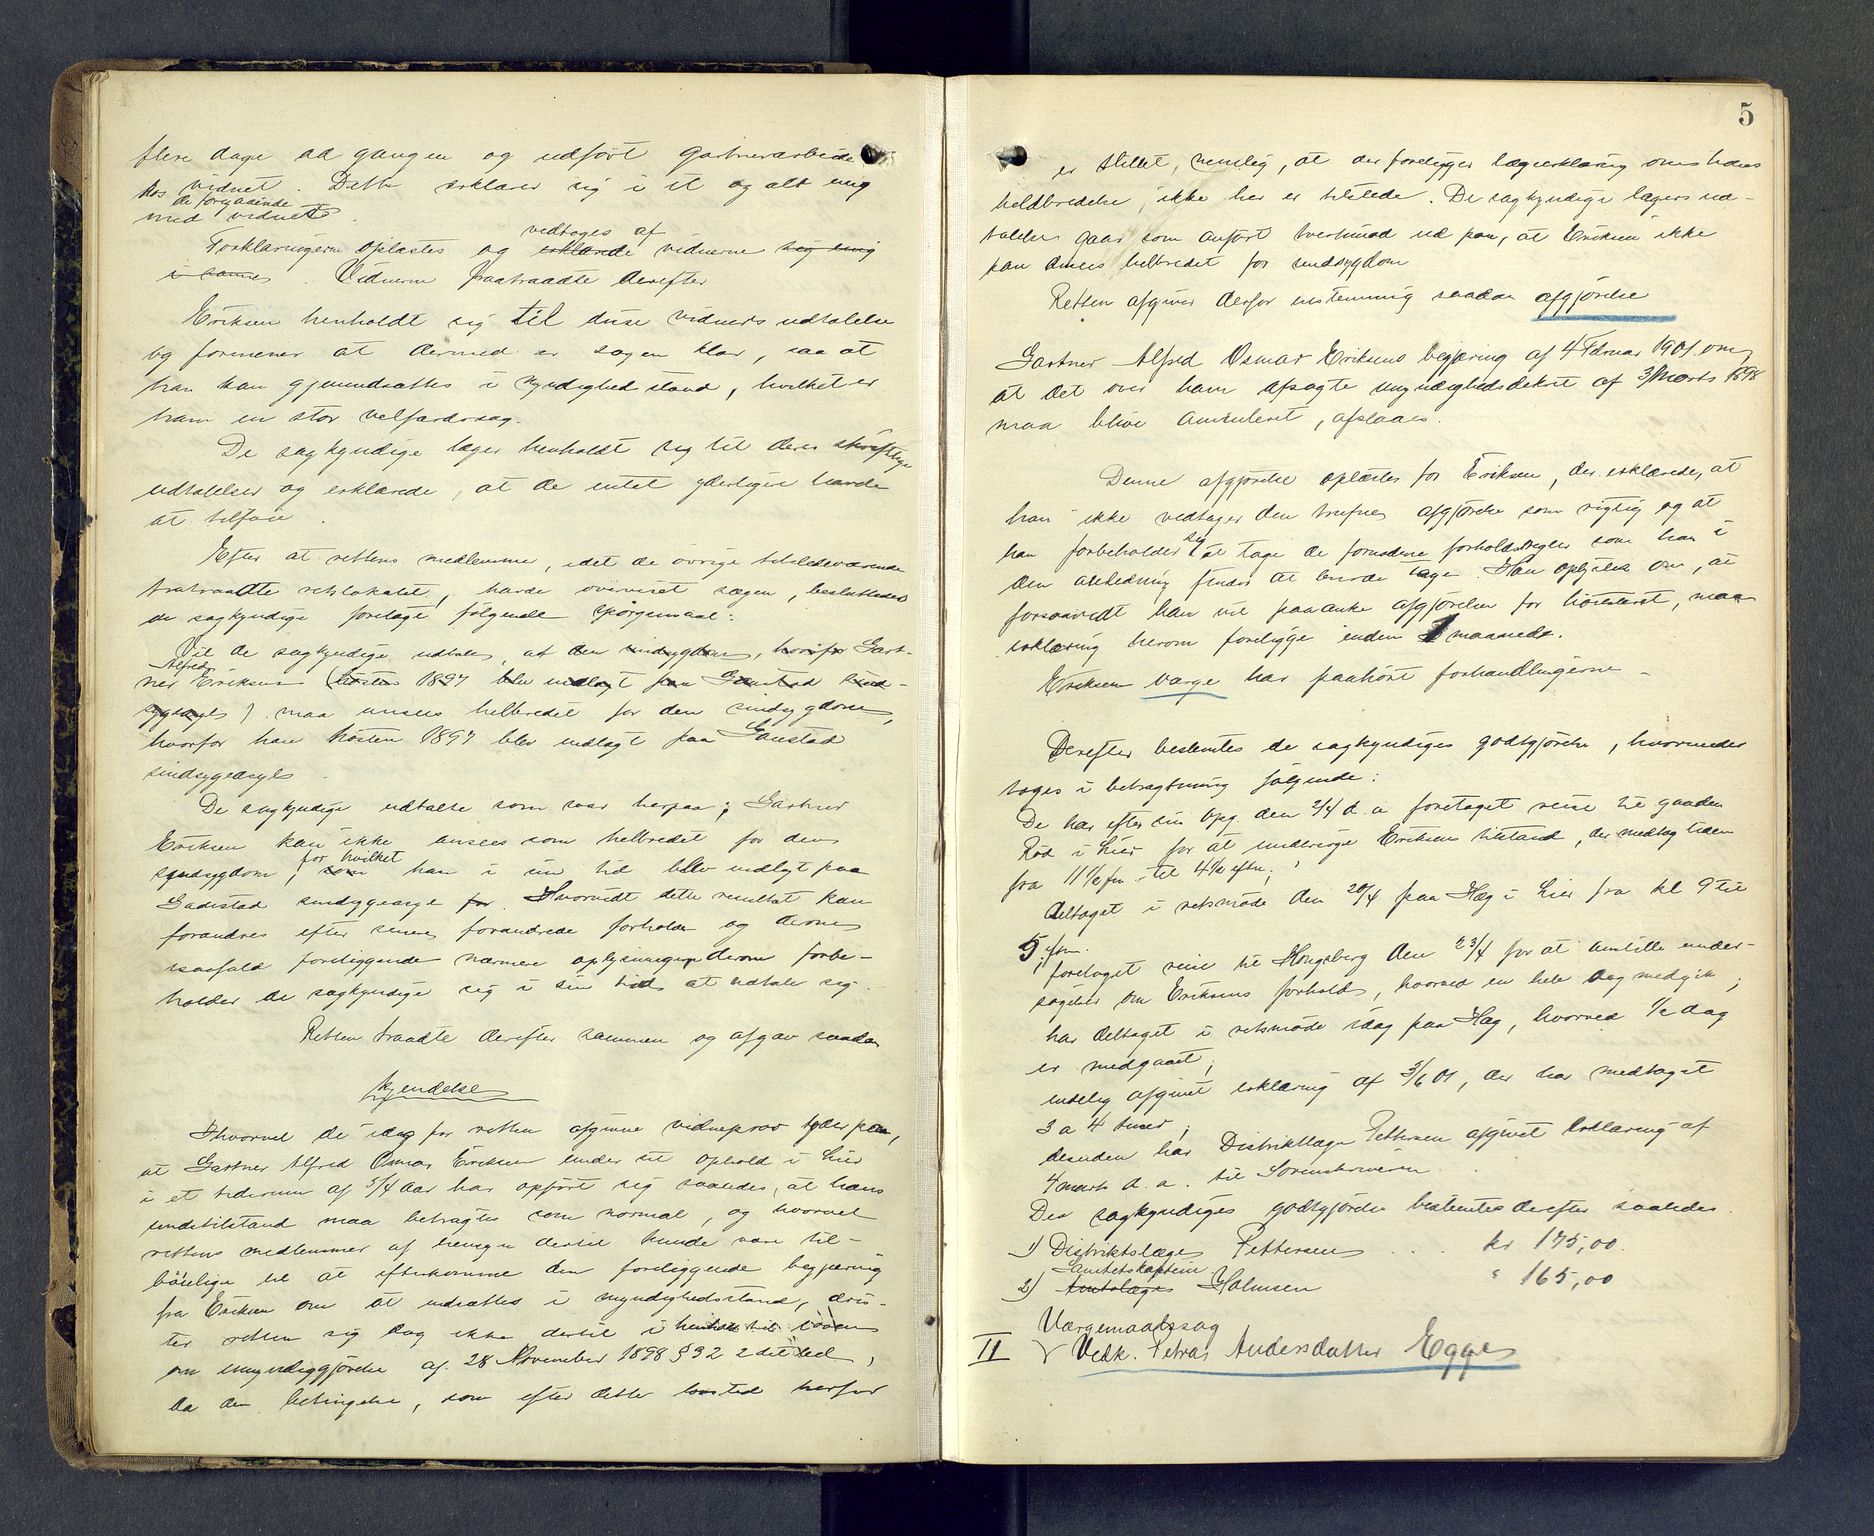 flere dage ad gangen og udført gartnerarbeide
hos vidnet. Dette erklærer sig i et og alt enig
de foregaaende
med vidnets.
vedtoges af
Forklaringerne oplæstes og erklærede vidnerne sig enig
i samme. Vidnerne fratraadte derefter
Eriksen henholdt sig til disse vidners udtalelse
og formener at dermed er sagen klar, saa at
han kan gjenindsættes i myndighedsstand, hvilket er
ham en stor velfærdssag.
De sagkyndige læger henholdt sig til deres skriftlige
udtalelser og erklærede, at de intet yderligere havde
at tilføie.
Efter at rettens medlemmer, idet de øvrige tilstedeværende
fratraadte retslokalet, havde overveiet sagen, besluttedes
de sagkyndige forelagt følgende spørgsmaal:
Vil de sagkyndige udtale, at den sindsygdom, hvorfor Gart-
Alfred
ner Eriksen (høsten 1897 blev indlagt paa Gaustad sind-
sygeasyl) maa ansees helbredet for den sindsygdom,
hvorfor han høsten 1897 blev indlagt paa Gaustad
sindsygeasyl.
De sagkyndige udtalte som svar herpaa: Gartner
Eriksen kan ikke ansees som helbredet for den
for hvilket
sindsygdom, som han i sin tid blev indlagt paa
Gaustad sindsygeasyl for. Hvorvidt dette resultat kan
forandres efter senere forandrede forholde og derom
isaafald foreliggende nærmere oplysninger derom forbe-
holder de sagkyndige sig i sin tid at udtale sig.
Retten traadte derefter sammen og afgav saadan
kjendelse
Ihvorvel de idag for retten afgivne vidneprov tyder paa,
at Gartner Alfred Osmar Eriksen under sit ophold i Lier
i et tidsrum af 5/4 aar har opført sig saaledes, at hans
sindstilstand maa betragtes som normal, og hvorvel
rettens medlemmer af hensyn dertil kunde være til-
bøielige til at efterkomme den foreliggende begjæring
fra Eriksen om at indsættes i myndighedsstand, dris-
ter retten sig dog ikke dertil i henhold til loven
om umyndiggjørelse af 28 November 1898 § 32 2det led,
da den betingelse, som efter dette led herfor
5
er stillet, nemlig, at der foreligger lægeerklæring om hans
helbredelse, ikke her er tilstede. De sagkyndige lægers ud-
talelse gaar som anført tvertimod ud paa, at Eriksen ikke
kan ansees helbredet for sindsygdom
Retten afgiver derfor enstemmig saadan afgjørelse
Gartner Alfred Osmar Eriksens begjæring af 4 Februar 1901 om,
at det over ham afsagte umyndighedsdekret af 3 Marts 1898
maa blive annuleret, afslaaes.
Denne afgjørelse oplæstes for Eriksen, der erklærede, at
han ikke vedtager den trufne afgjørelse som rigtig og at
sig
han forbeholder at tage de fornødne forholdsregler som han i
den anledning finder at burde tage. Han oplystes om, at
forsaavidt han vil paaanke afgjørelsen for høiesteret, maa
erklæring herom foreligge inden 1 maaned.
Eriksens værge har paahørt forhandlingerne.
Derefter bestemtes de sagkyndiges godtgjørelse, hvorunder
toges i betragtning følgende:
De har efter sin opg. den 2/4 d.a. foretaget reise til gaarden
Rød i Lier for at undersøge Eriksens tilstand, der medtog tiden
fra 11 1/2 fm. til 4 1/2 eftm.;
deltaget i retsmøde den 20/4 paa Hæg i Lier fra kl 9 til
5 fm.
foretaget reise til Kongsberg den 23/4 for at anstille under-
søgelser om Eriksens forhold, hvorved en hele dag medgik;
har deltaget i retsmøde idag paa Hæg, hvorved 1/2 dag
er medgaaet;
endelig afgivet erklæring af 3/6 01, der har medtaget
3 a 4 timer;
desuden har Distriktslæge Pettersen afgivet erklæring af
4 marts d.a. til Sorenskriveren.
De sagkyndiges godtgjørelse bestemtes derefter saaledes.
1) Distriktslæge Pettersen . . . kr 175,00.
Sanitetskaptein
2) Amtslæge Holmsen " 165,00
Værgemaalssag
II Vedk. Petra Andersdatter Egge